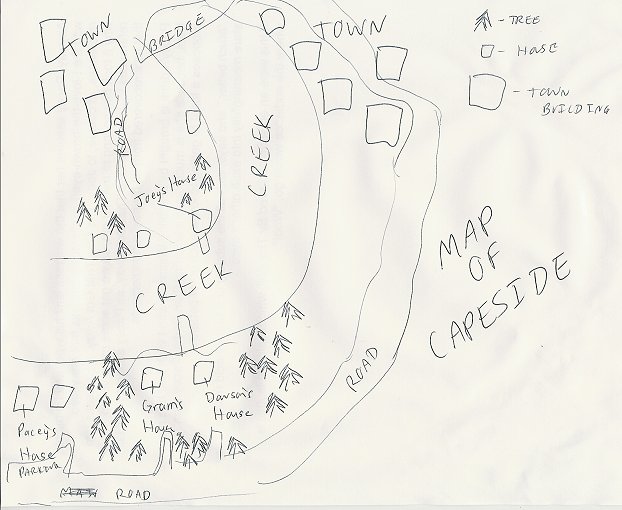 TOWN
BRIDGE
TOWN
- TREE
- HOSE
- TOWN
BUILDING
ROAD
CREEK
Joey's House
CREEK
MAP
OF
CAPESIDE
ROAD
Gram's
House
Dawson's
House
Pacey's
Hose
PARKING
ROAD